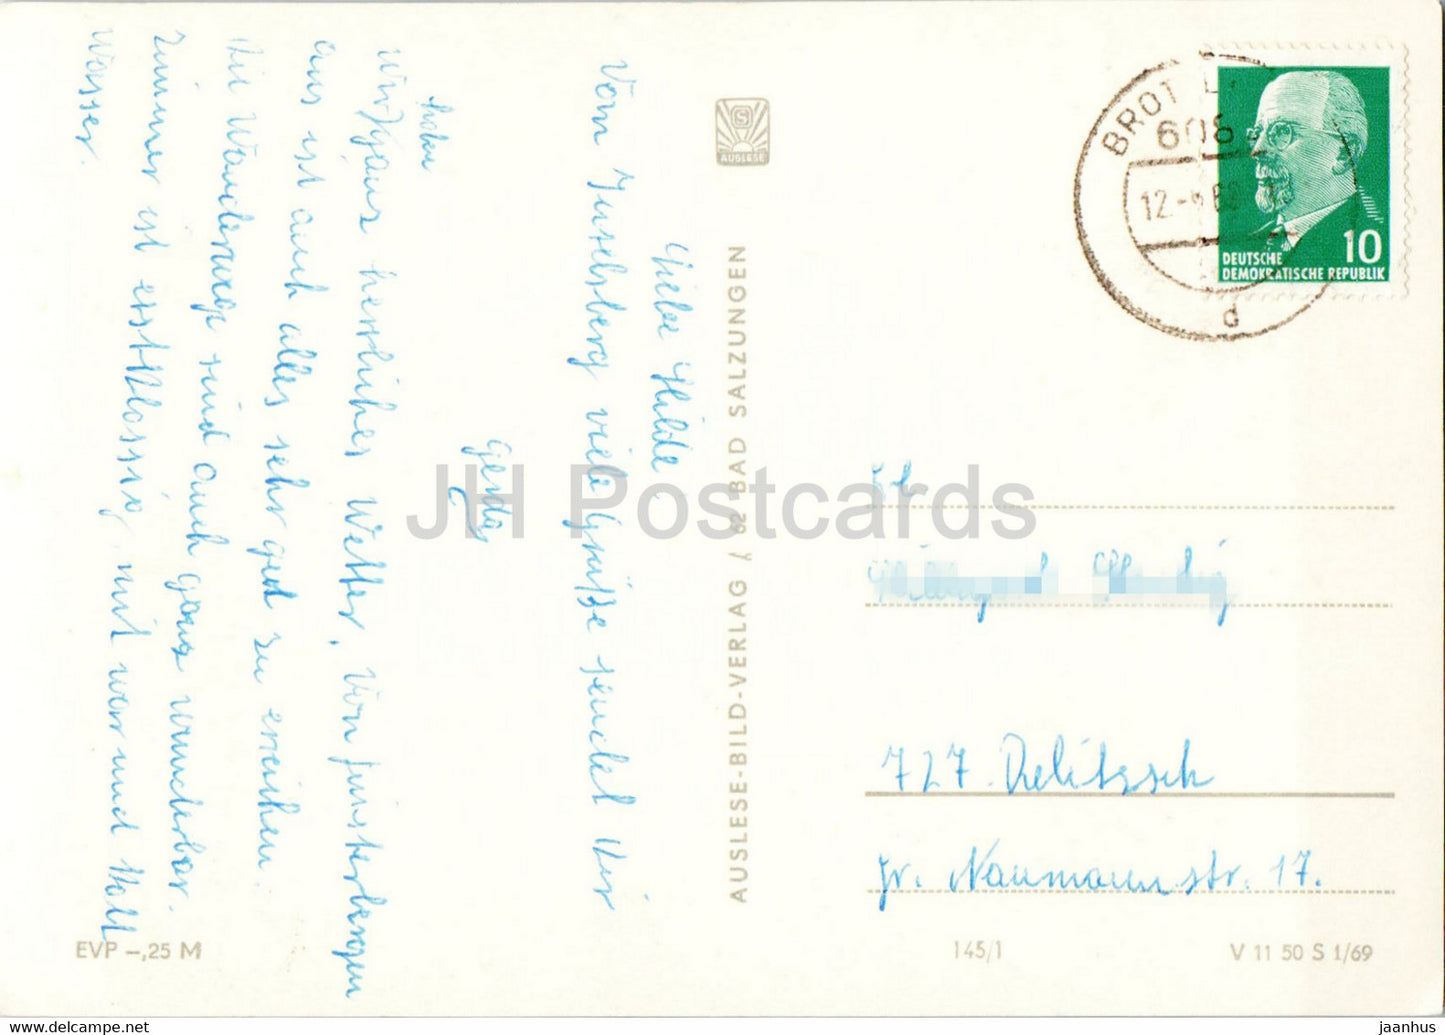 Liebe Hilde.
Vom Inselsberg viele Grüße sendet Dir
Gerda
haben
Wir ganz herrliches Wetter. Von Finsterbergen
aus ist auch alles sehr gut zu erreichen.
Die Wanderwege sind auch ganz wunderbar.
Zimmer ist erstklassig, mit war und Kalt
Wasser.
EVP –,25 M
AUSLESE
AUSLESE-BILD-VERLAG / 62 BAD SALZUNGEN
BROT
608
12.
d
10
DEUTSCHE
DEMOKRATISCHE REPUBLIK
727 Delitzsch
Fr. Naumannstr. 17.
145/1
V 11 50 S 1/69
JH Postcards
www.delcampe.net
jaanhus